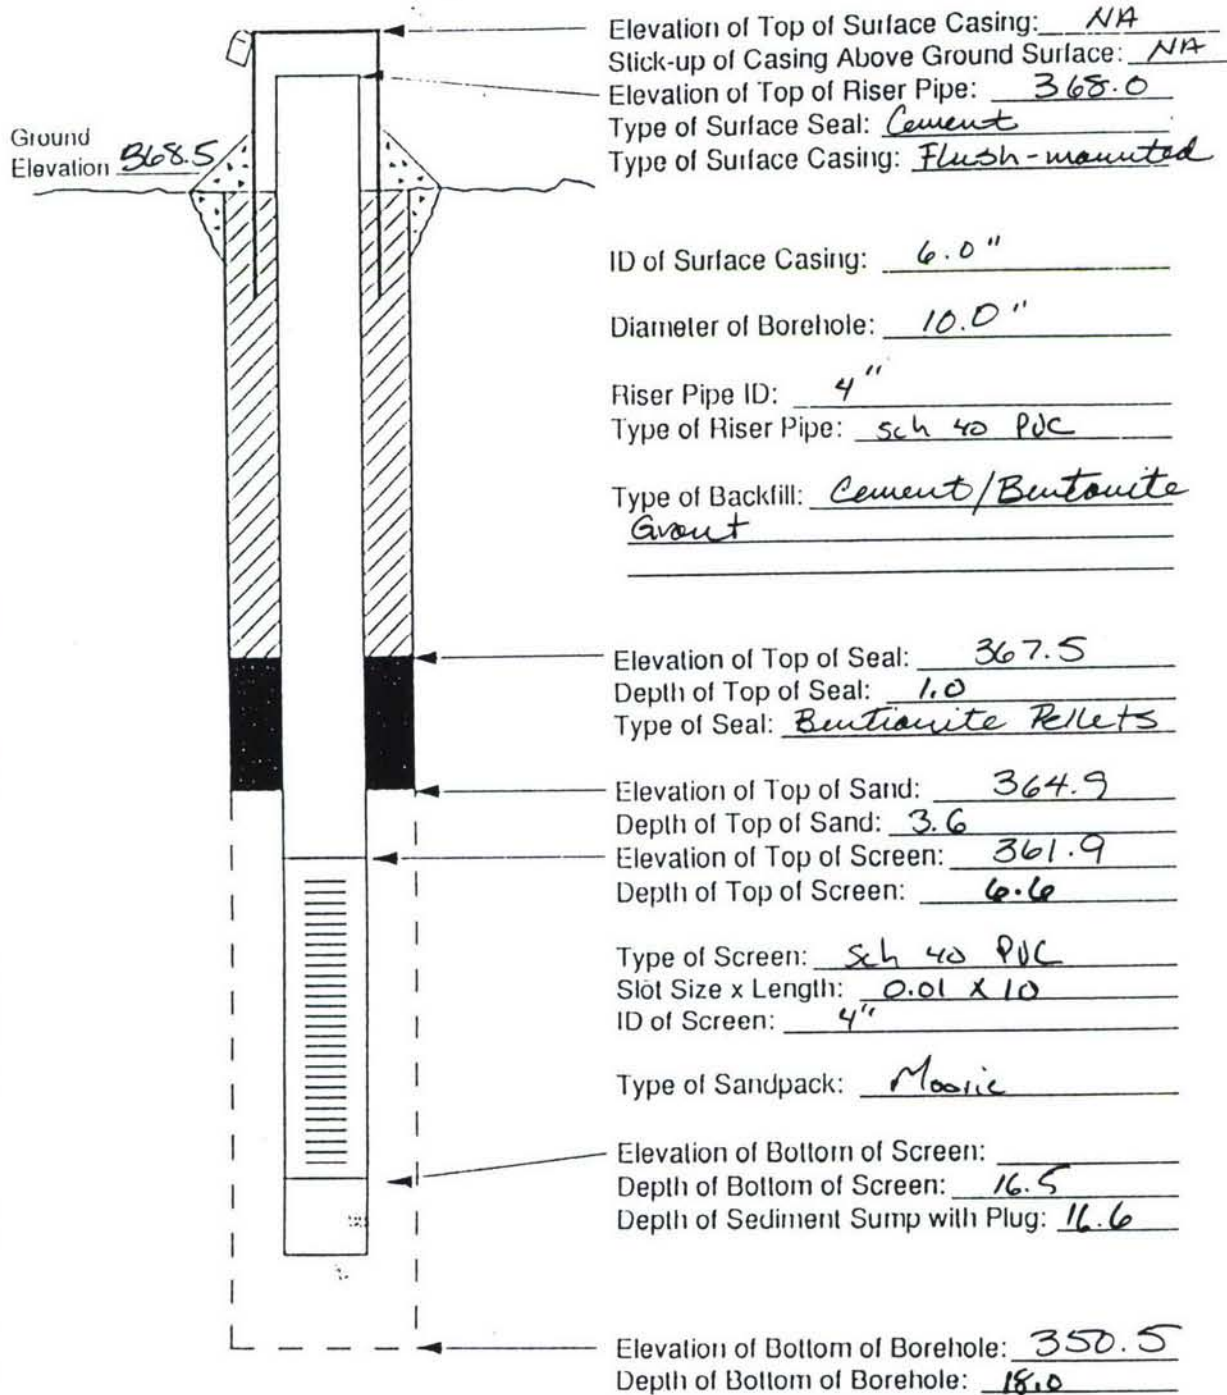 Elevation of Top of Surface Casing: NA
Stick-up of Casing Above Ground Surface: NA
Elevation of Top of Riser Pipe: 368.0
Type of Surface Seal: Cement
Type of Surface Casing: Flush-mounted
Ground
Elevation 368.5
ID of Surface Casing: 6.0"
Diameter of Borehole: 10.0"
Riser Pipe ID: 4"
Type of Riser Pipe: sch 40 PVC
Type of Backfill: Cement/Bentonite
Grout
Elevation of Top of Seal: 367.5
Depth of Top of Seal: 1.0
Type of Seal: Bentionite Pellets
Elevation of Top of Sand: 364.9
Depth of Top of Sand: 3.6
Elevation of Top of Screen: 361.9
Depth of Top of Screen: 6.6
Type of Screen: Sch 40 PVC
Slot Size x Length: 0.01 x 10
ID of Screen: 4"
Type of Sandpack: Moorie
Elevation of Bottom of Screen:
Depth of Bottom of Screen: 16.5
Depth of Sediment Sump with Plug: 16.6
Elevation of Bottom of Borehole: 350.5
Depth of Bottom of Borehole: 18.0